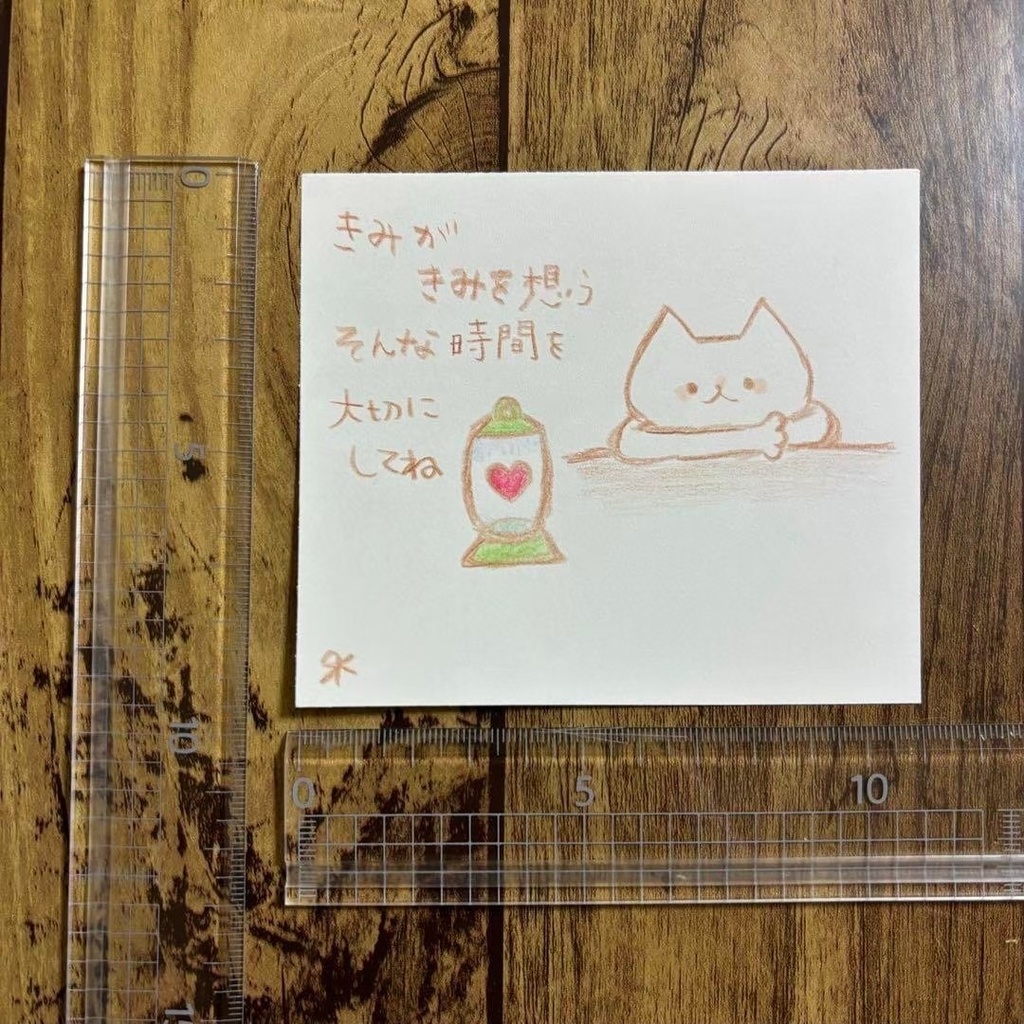 きみが
きみを想う
そんな時間を
大切に
してね
0
5
10
0
5
10